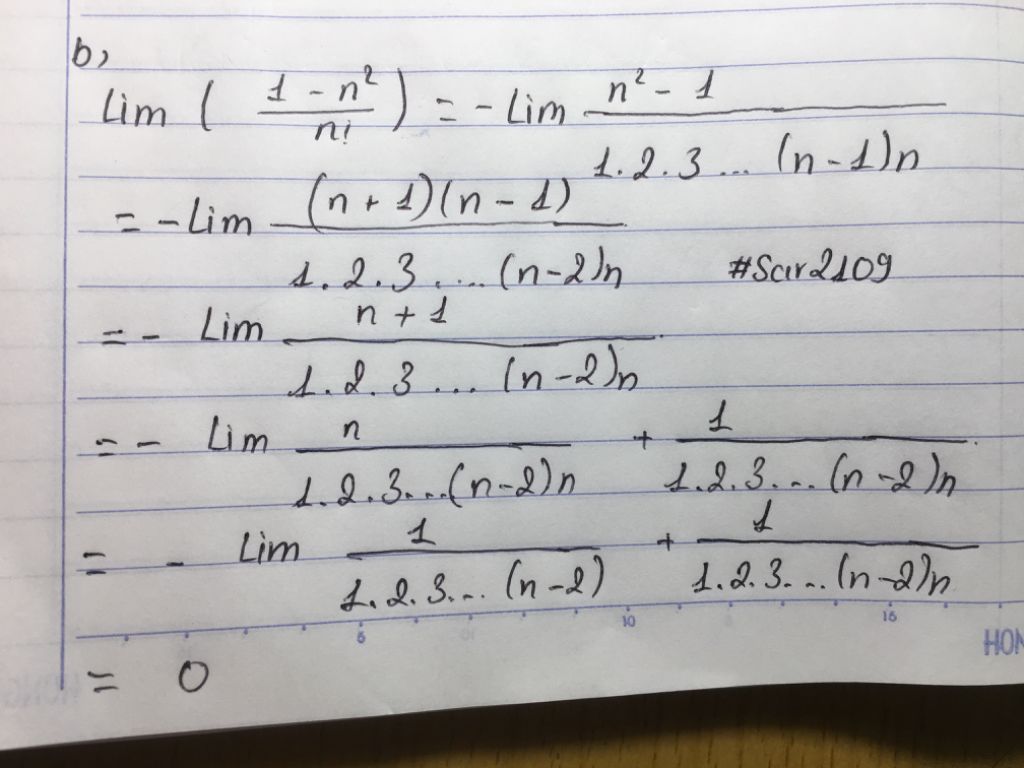 b,
Lim ( \frac{1 - n²}{n!} ) = - Lim \frac{n² - 1}{1.2.3... (n-1)n}
= - Lim \frac{(n + 1)(n - 1)}{1.2.3.... (n-2)n} #Scir2109
= - Lim \frac{n + 1}{1.2.3... (n-2)n}
= - Lim \frac{n}{1.2.3...(n-2)n} + \frac{1}{1.2.3... (n-2)n}
= - Lim \frac{1}{1.2.3... (n-2)} + \frac{1}{1.2.3... (n-2)n}
5 10 15
= 0